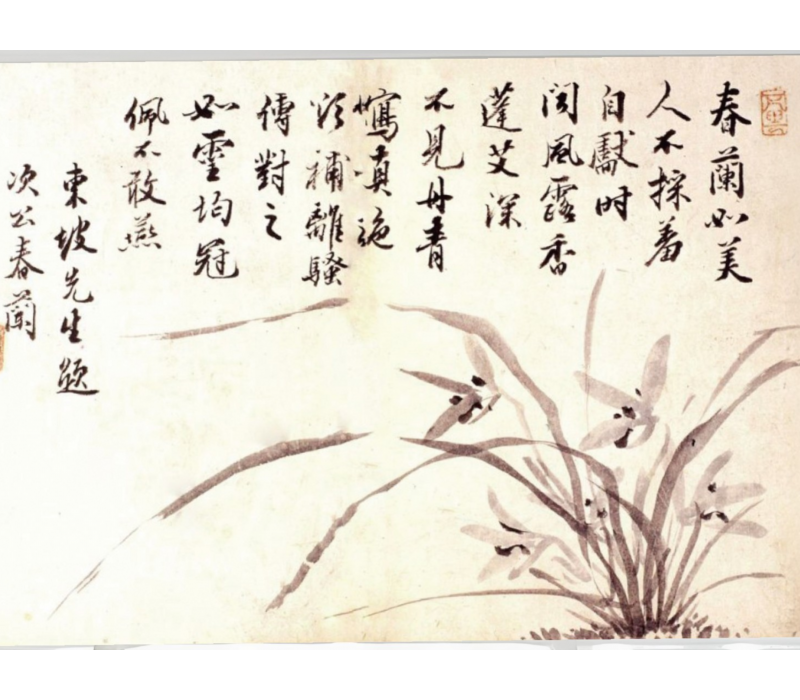 春蘭如美
人不採羞
自獻時
聞風露香
蓬艾深
不見丹青
寫真色
欲補離騷
傳對之
如靈均冠
佩不敢燕
東坡先生題
次公春蘭